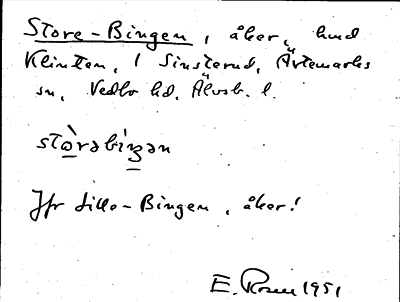 Store-Bingen, åker, hmd
Klinten, 1 Sinsterud, Ärtemarks
sn, Vedbo hd, Älvsb. l.
stòrəbíŋən
Jfr Lille-Bingen, åker!
E. Rosén 1951